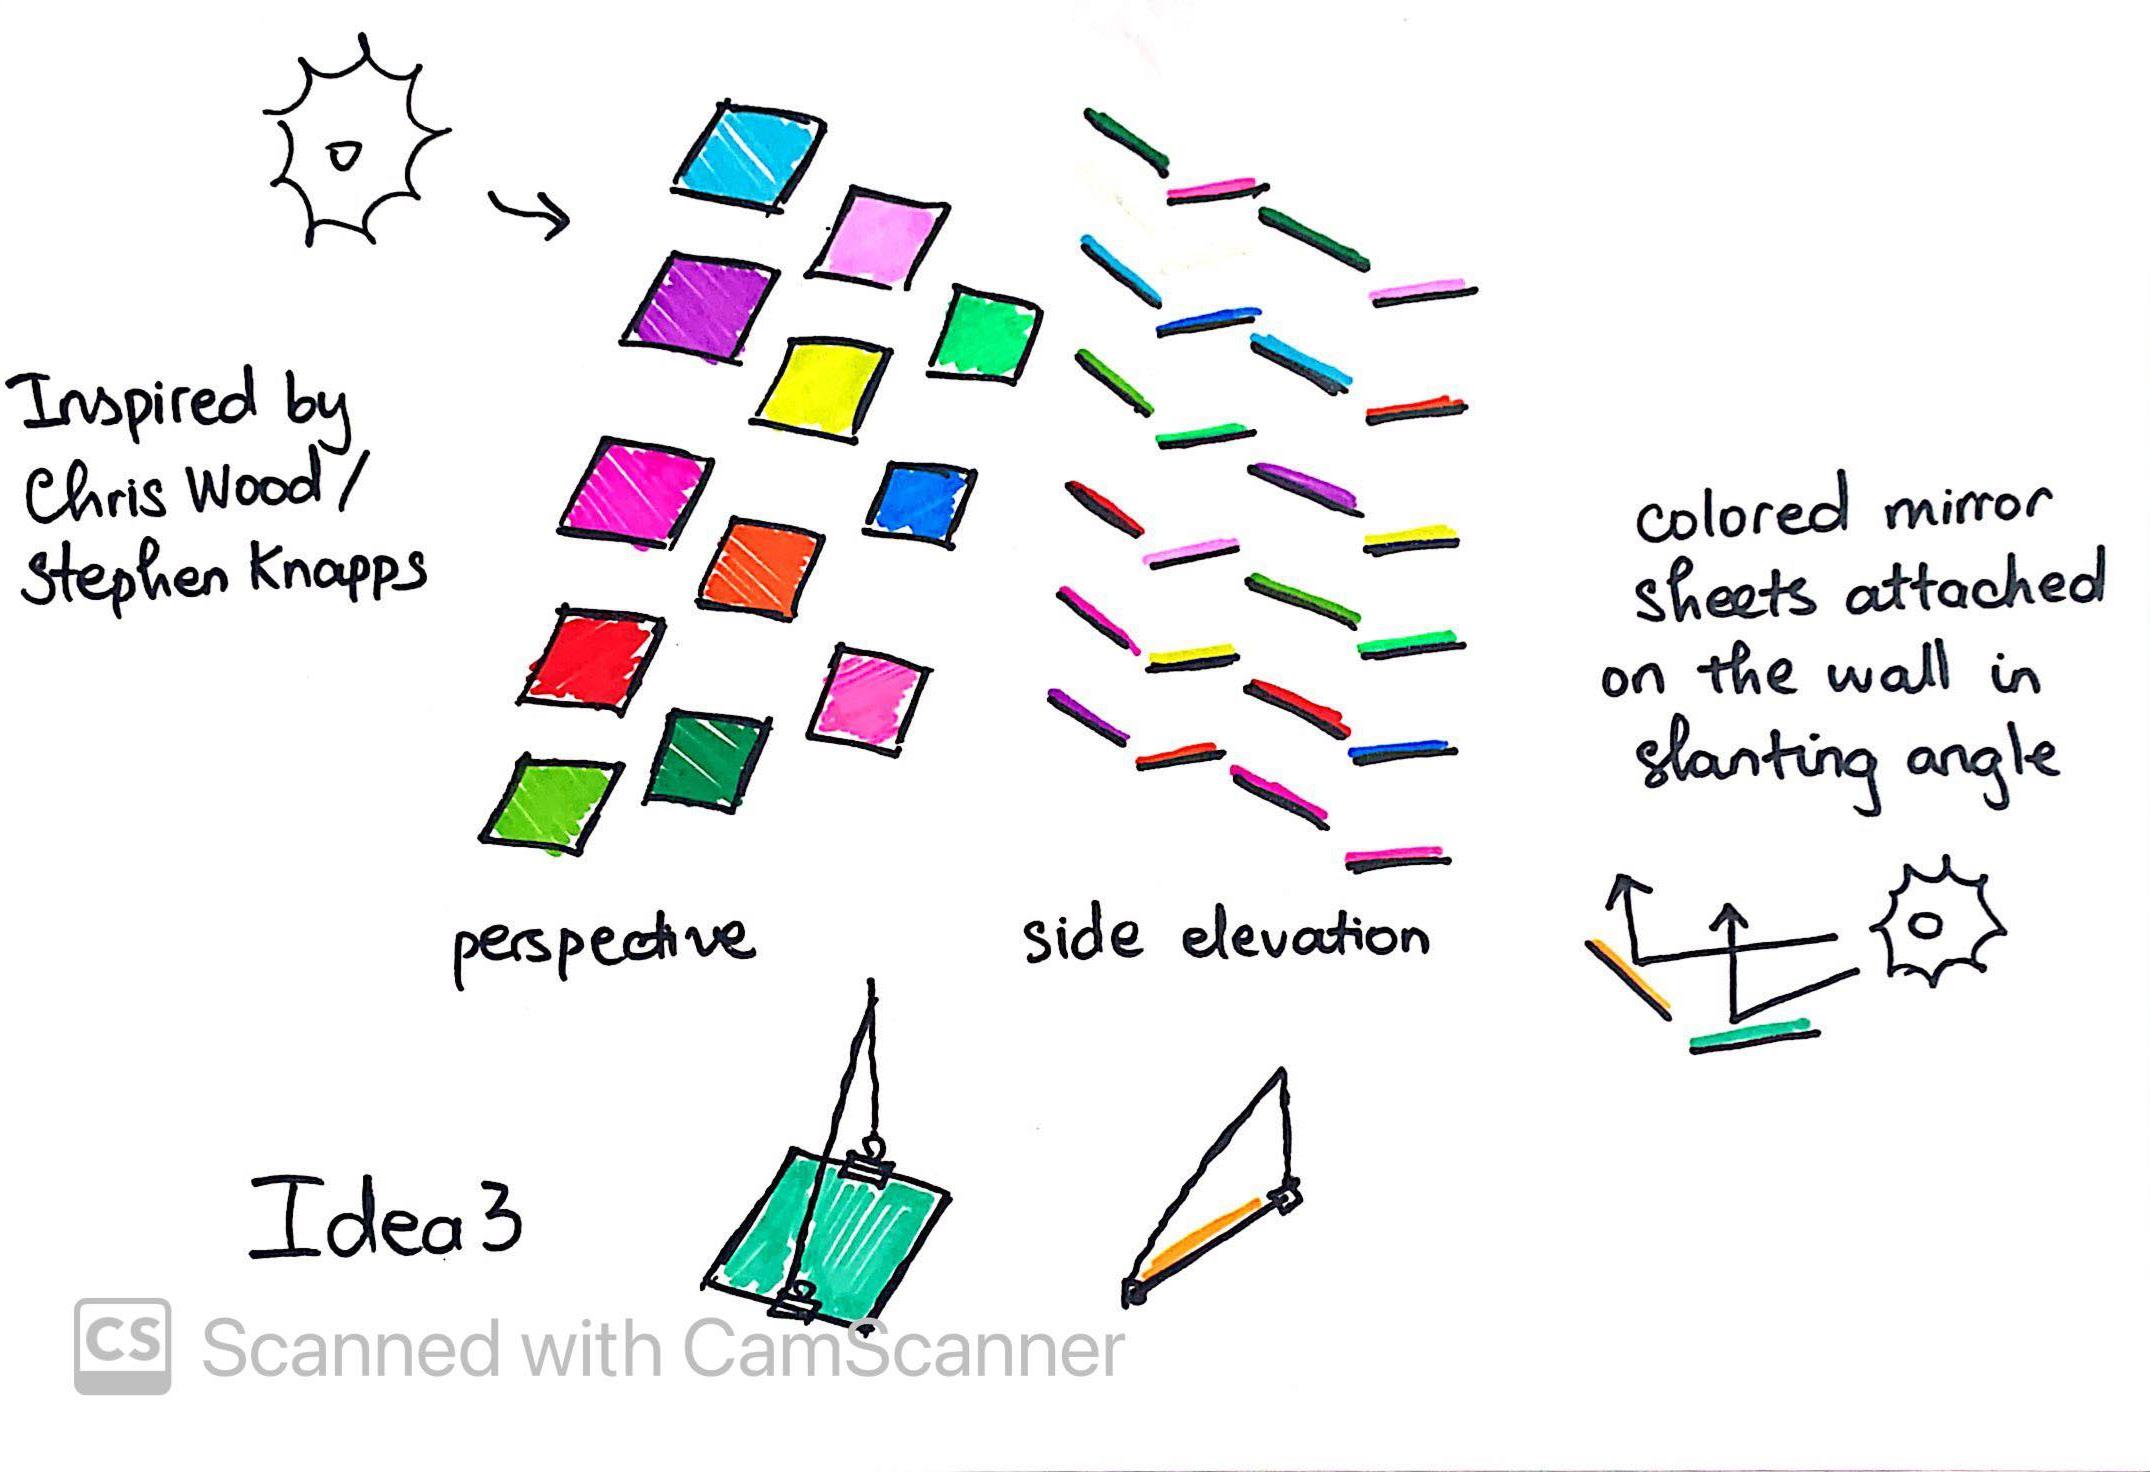 Inspired by
Chris Wood/
Stephen Knapps
colored mirror
sheets attached
on the wall in
slanting angle
perspective
side elevation
Idea 3
CS Scanned with CamScanner